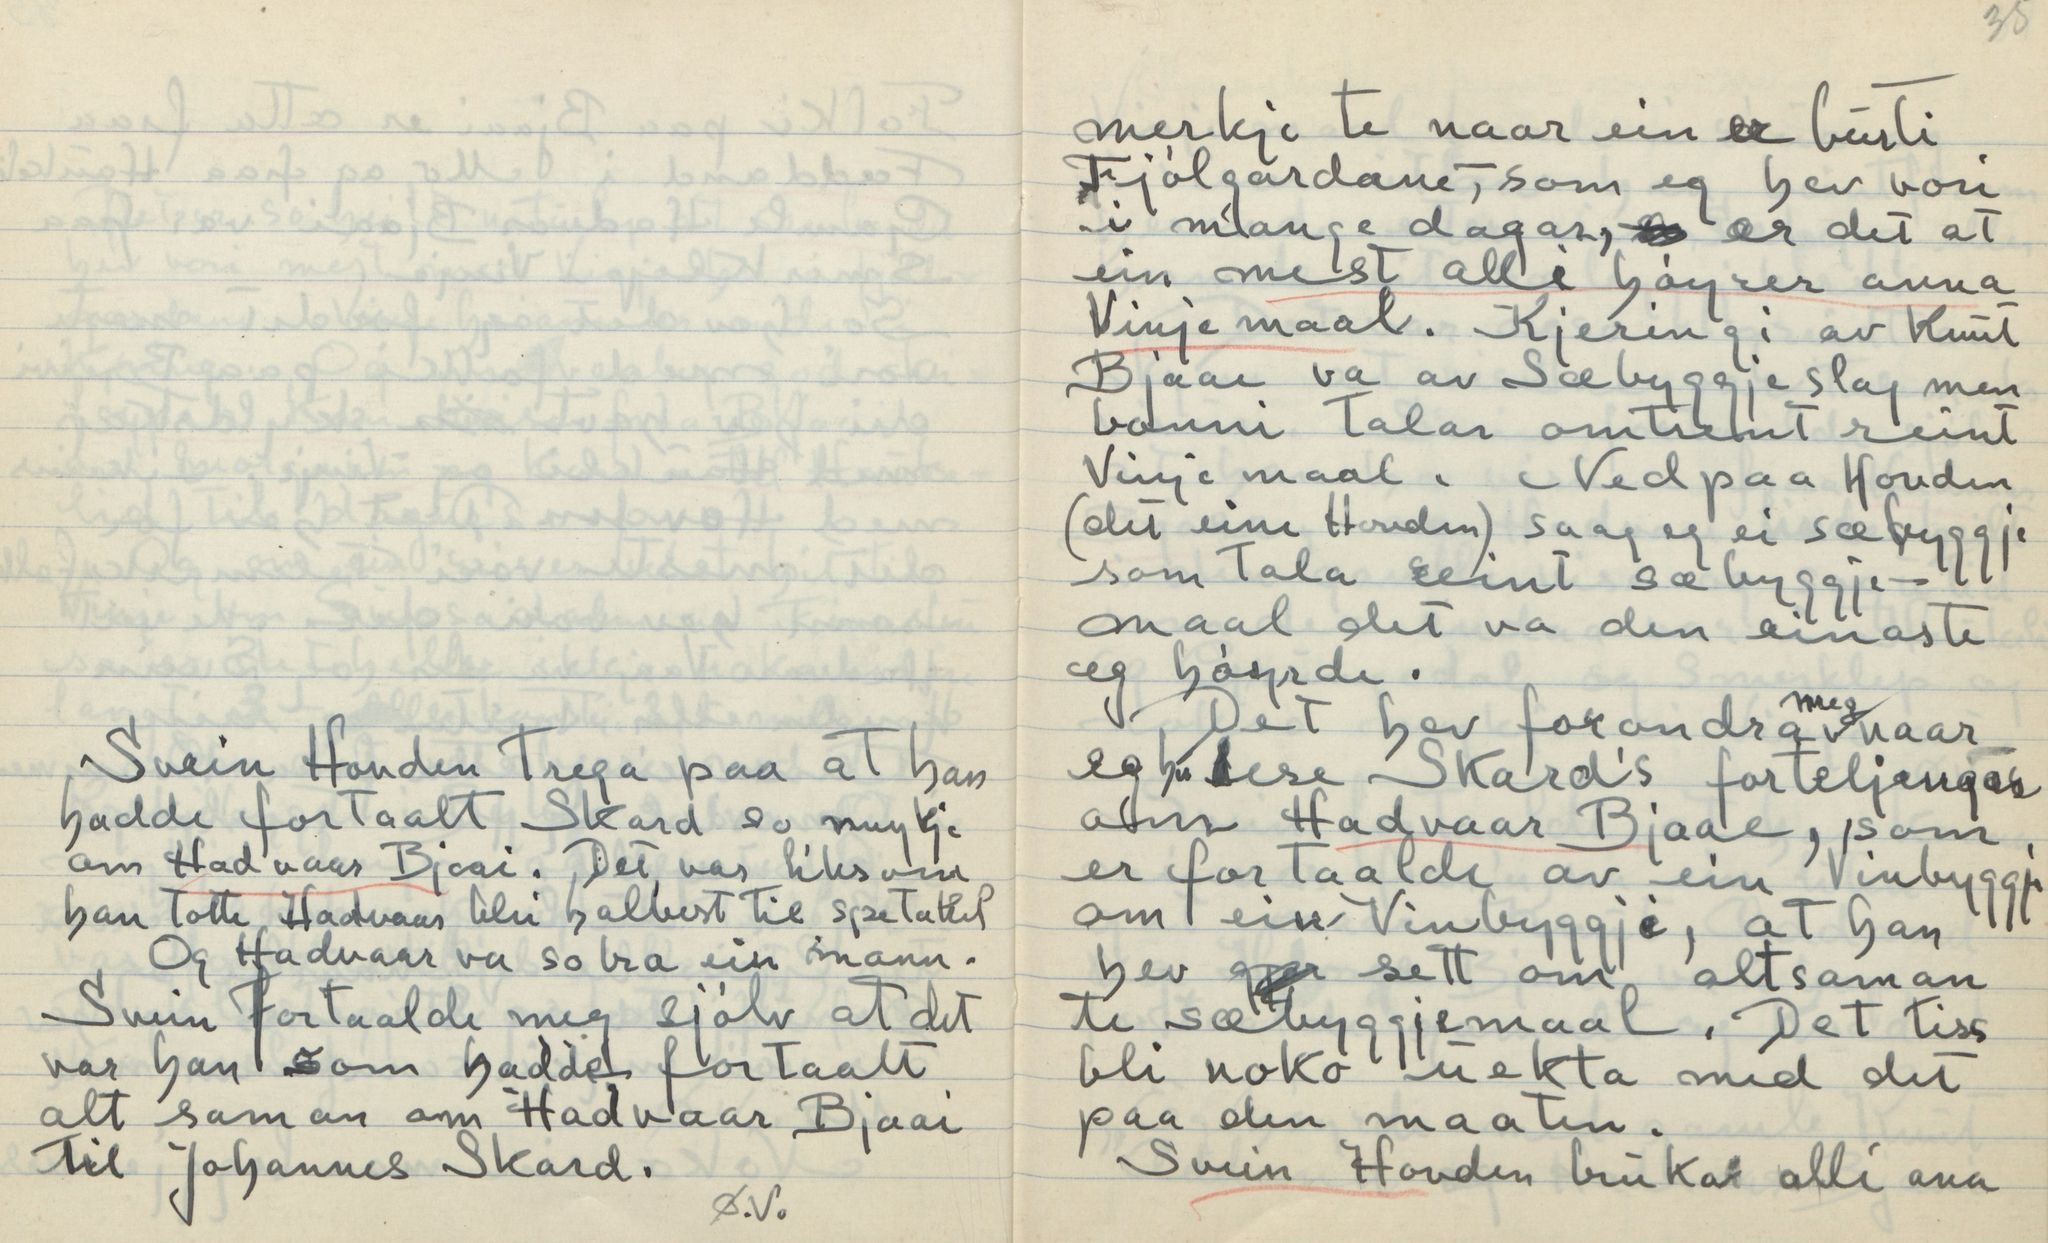 Svein Hovden trega paa at han
hadde fortaalt Skard so mykje
om Hadvaar Bjaai. Det var liksom
han totte Hadvaar blei halbest til spetakkel
Og Hadvaar va so bra ein mann.
Svein fortaalde meg sjólv at det
var han som hadde fortaalt
alt saman om Hadvaar Bjaai
til Johannes Skard.
Ø.V.
35
merkje te naar ein er bústi
Fjólgardane, som eg hev vori
i mange dagar, er det at
ein mest alli hóyrer anna
Vinjemaal. Kjeringi av Knut
Bjaae va av Sæbyggjeslag men
bonni talar omtrent reint
Vinjemaal. Ned paa Hovden
(det eine Hovden) saag eg ei sæbyggje
som tala reint sæbyggje-
maal det va den einaste
eg hóyrde.
Det hev forondra meg naar
eg lese Skard's forteljingar
om Hadvaar Bjaae, som
er fortaalde av ein Vinbyggje
om ein Vinbyggje, at han
hev sett om altsaman
te sæbyggjemaal. Det tiss
bli noko úekta med det
paa den maaten.
Svein Hovden brúkar alli ana